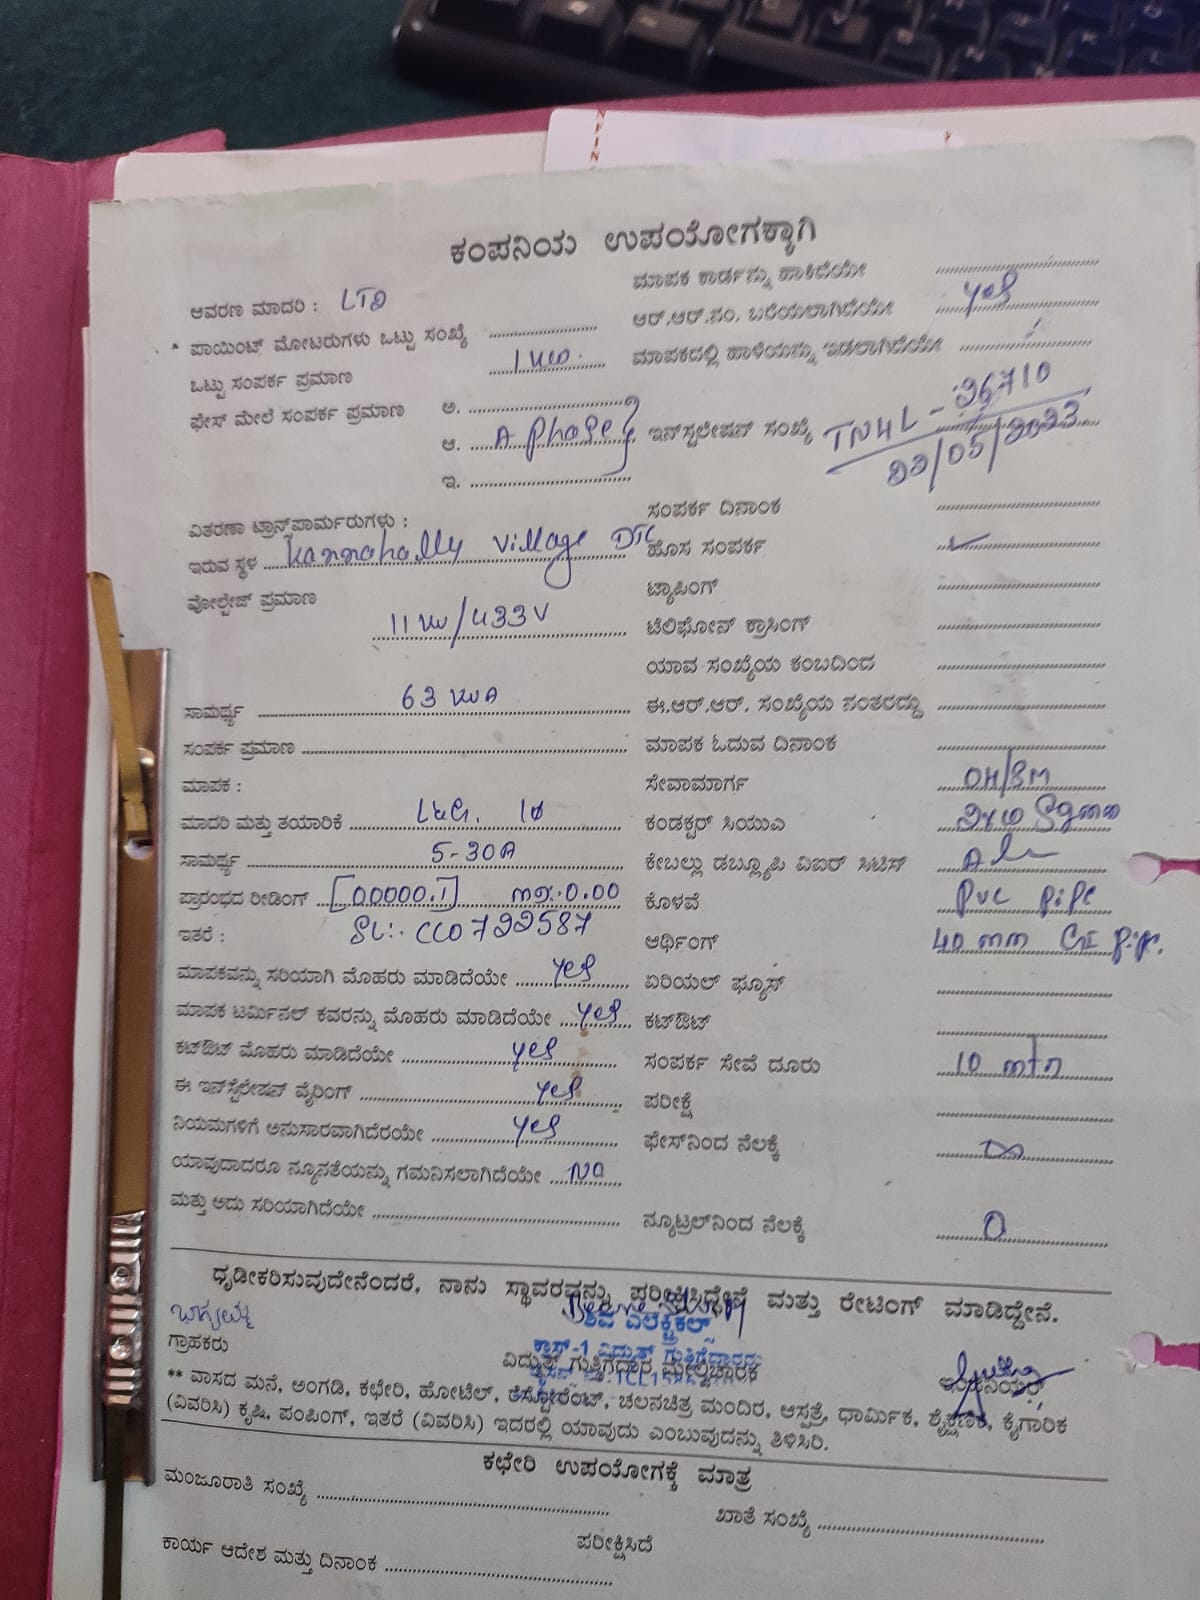 ಕಂಪನಿಯ ಉಪಯೋಗಕ್ಕಾಗಿ
ಆವರಣ ಮಾದರಿ : LT2
* ಪಾಯಿಂಟ್ ಮೋಟರುಗಳು ಒಟ್ಟು ಸಂಖ್ಯೆ
ಒಟ್ಟು ಸಂಪರ್ಕ ಪ್ರಮಾಣ 1 KW.
ಫೇಸ್ ಮೇಲೆ ಸಂಪರ್ಕ ಪ್ರಮಾಣ ಅ.
ಆ. A phase
ಇ.
ವಿತರಣಾ ಟ್ರಾನ್ಸ್‌ಪಾರ್ಮರುಗಳು :
ಇರುವ ಸ್ಥಳ Kannahally Village DTC
ವೋಲ್ಟೇಜ್ ಪ್ರಮಾಣ
11 KV/433V
ಸಾಮರ್ಥ್ಯ 63 KVA
ಸಂಪರ್ಕ ಪ್ರಮಾಣ
ಮಾಪಕ :
ಮಾದರಿ ಮತ್ತು ತಯಾರಿಕೆ L&G. 1Φ
ಸಾಮರ್ಥ್ಯ 5-30A
ಪ್ರಾರಂಭದ ರೀಡಿಂಗ್ [00000.1] 0.00
ಇತರೆ : SL:. CC0722587
ಮಾಪಕವನ್ನು ಸರಿಯಾಗಿ ಮೊಹರು ಮಾಡಿದೆಯೇ yes
ಮಾಪಕ ಟರ್ಮಿನಲ್ ಕವರನ್ನು ಮೊಹರು ಮಾಡಿದೆಯೇ yes
ಕಟ್‌ಔಟ್ ಮೊಹರು ಮಾಡಿದೆಯೇ yes
ಈ ಇನ್‌ಸ್ಟಲೇಷನ್ ವೈರಿಂಗ್ yes
ನಿಯಮಗಳಿಗೆ ಅನುಸಾರವಾಗಿದೆರಯೇ yes
ಯಾವುದಾದರೂ ನ್ಯೂನತೆಯನ್ನು ಗಮನಿಸಲಾಗಿದೆಯೇ NO
ಮತ್ತು ಅದು ಸರಿಯಾಗಿದೆಯೇ
ಮಾಪಕ ಕಾರ್ಡನ್ನು ಹಾಕಿದೆಯೇ
ಆರ್.ಆರ್.ನಂ. ಬರೆಯಲಾಗಿದೆಯೇ yes
ಮಾಪಕದಲ್ಲಿ ಹಾಳೆಯನ್ನು ಇಡಲಾಗಿದೆಯೇ
ಇನ್‌ಸ್ಟಲೇಷನ್ ಸಂಖ್ಯೆ TN4L - 26710
22/05/2023
ಸಂಪರ್ಕ ದಿನಾಂಕ
ಹೊಸ ಸಂಪರ್ಕ
ಟ್ಯಾಪಿಂಗ್
ಟೆಲಿಫೋನ್ ಕ್ರಾಸಿಂಗ್
ಯಾವ ಸಂಖ್ಯೆಯ ಕಂಬದಿಂದ
ಈ.ಆರ್.ಆರ್. ಸಂಖ್ಯೆಯ ನಂತರದ್ದು
ಮಾಪಕ ಓದುವ ದಿನಾಂಕ
ಸೇವಾಮಾರ್ಗ OH/SM
ಕಂಡಕ್ಟರ್ ಸಿಯುವಿ
ಕೇಬಲ್ಲು ಡಬ್ಲ್ಯೂಪಿ ವಿಐರ್ ಸಿಟಿಸ್
ಕೊಳವೆ PVC Pipe
ಆರ್ಥಿಂಗ್ 40 mm GI pipe.
ಏರಿಯಲ್ ಫ್ಯೂಸ್
ಕಟ್‌ಔಟ್
ಸಂಪರ್ಕ ಸೇವೆ ದೂರು 10 mtr
ಪರೀಕ್ಷೆ
ಫೇಸ್‌ನಿಂದ ನೆಲಕ್ಕೆ ∞
ನ್ಯೂಟ್ರಲ್‌ನಿಂದ ನೆಲಕ್ಕೆ 0
ಧೃಡೀಕರಿಸುವುದೇನೆಂದರೆ, ನಾನು ಸ್ಥಾವರವನ್ನು ಪರೀಕ್ಷಿಸಿದ್ದೇನೆ ಮತ್ತು ರೇಟಿಂಗ್ ಮಾಡಿದ್ದೇನೆ.
ಶಿವ ಎಲೆಕ್ಟ್ರಿಕಲ್ಸ್
ಕ್ಲಾಸ್-1 ವಿದ್ಯುತ್ ಗುತ್ತಿಗೆದಾರರು
ಗ್ರಾಹಕರು ವಿದ್ಯುತ್ ಗುತ್ತಿಗೆದಾರ ಮೇಲ್ವಿಚಾರಕ ಇಂಜಿನಿಯರ್
** ವಾಸದ ಮನೆ, ಅಂಗಡಿ, ಕಛೇರಿ, ಹೋಟೆಲ್, ರೆಸ್ಟೋರೆಂಟ್, ಚಲನಚಿತ್ರ ಮಂದಿರ, ಆಸ್ಪತ್ರೆ, ಧಾರ್ಮಿಕ, ಶೈಕ್ಷಣಿಕ, ಕೈಗಾರಿಕ
(ವಿವರಿಸಿ) ಕೃಷಿ, ಪಂಪಿಂಗ್, ಇತರೆ (ವಿವರಿಸಿ) ಇದರಲ್ಲಿ ಯಾವುದು ಎಂಬುವುದನ್ನು ತಿಳಿಸಿರಿ.
ಕಛೇರಿ ಉಪಯೋಗಕ್ಕೆ ಮಾತ್ರ
ಮಂಜೂರಾತಿ ಸಂಖ್ಯೆ ಖಾತೆ ಸಂಖ್ಯೆ
ಪರೀಕ್ಷಿಸಿದೆ
ಕಾರ್ಯ ಆದೇಶ ಮತ್ತು ದಿನಾಂಕ